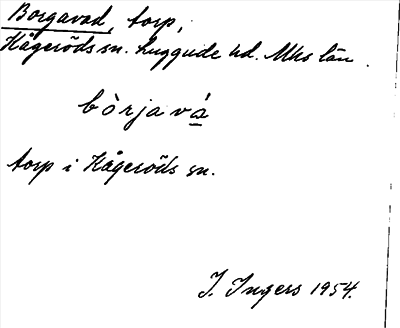 Borgavad, torp,
Kågeröds sn. Luggude hd. Mhs län.
bòrjavá
torp i Kågeröds sn.
I. Ingers 1954.